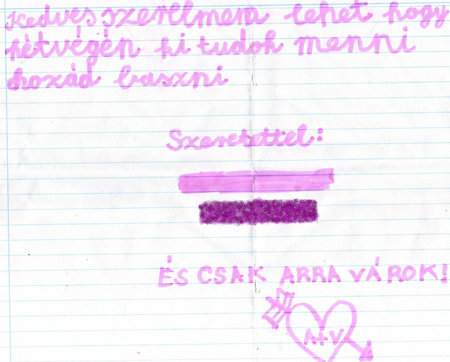 Kedves szerelmem lehet hogy
hétvégén ki tudok menni
hozzád baszni
Szeretettel:
ÉS CSAK ARRA VÁROK!
A+V